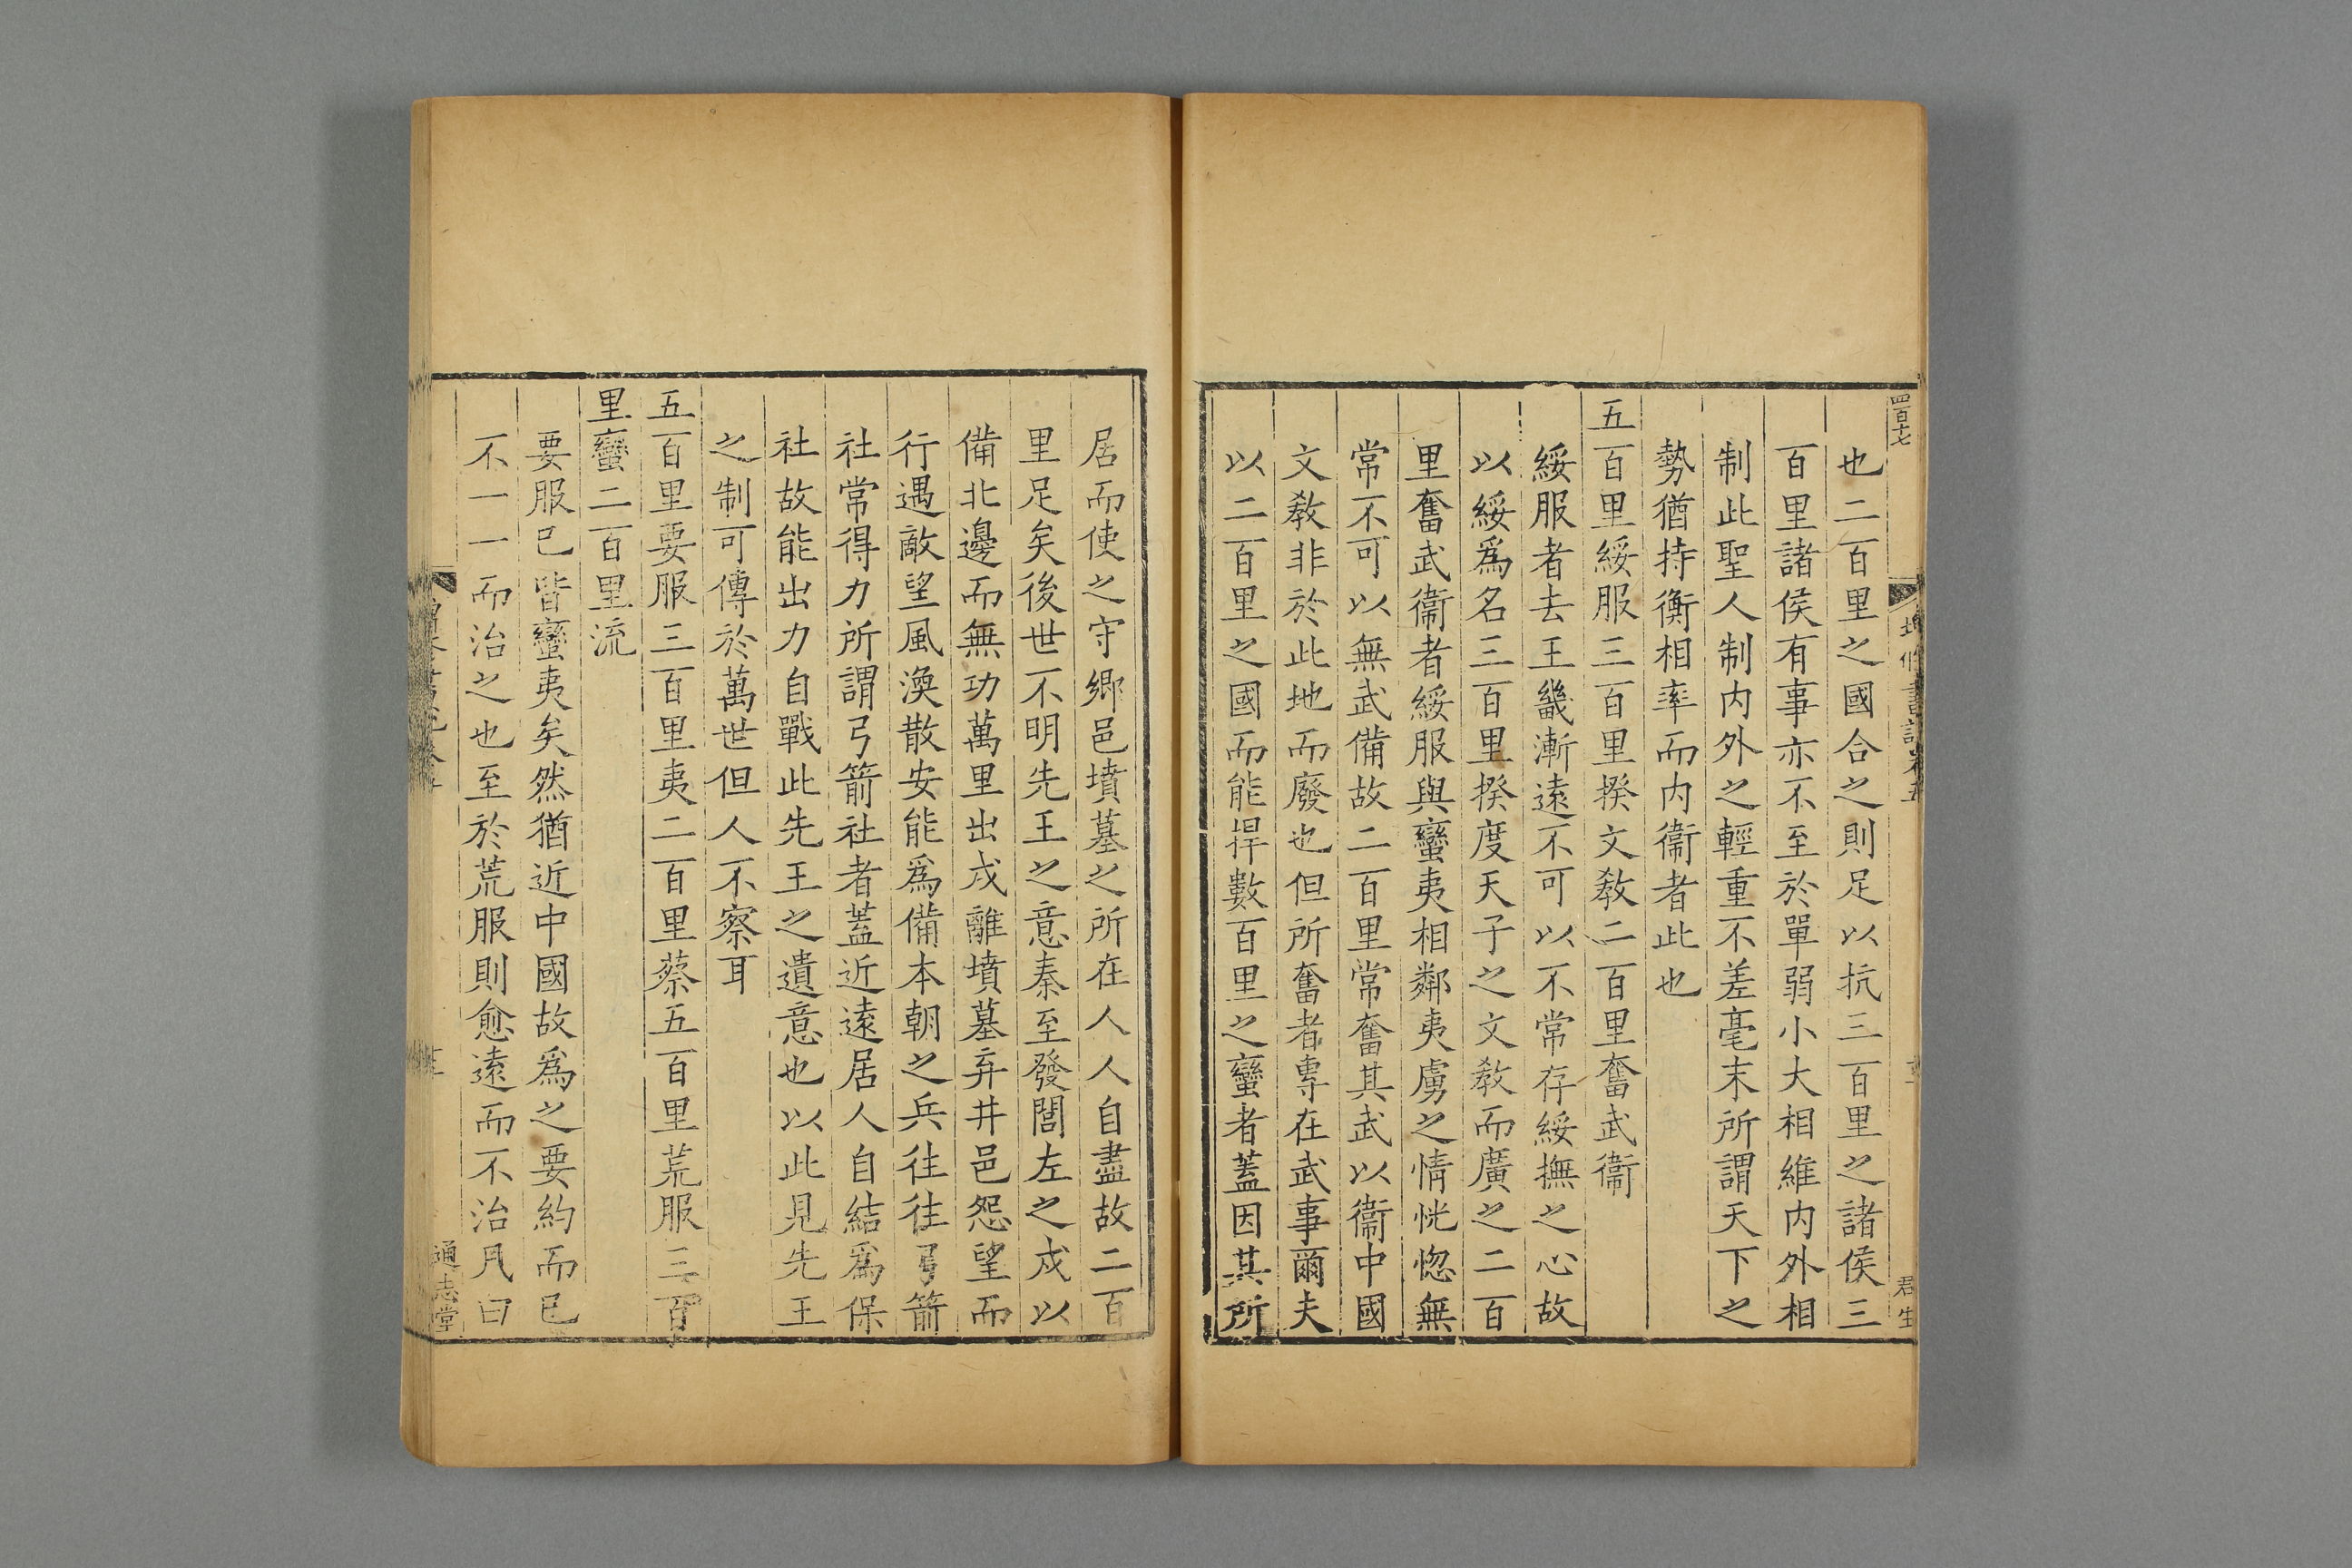 四百十七
君生
也二百里之國合之則足以抗三百里之諸侯三
百里諸侯有事亦不至於單弱小大相維内外相
制此聖人制内外之輕重不差毫末所謂天下之
勢猶持衡相率而内衞者此也
五百里綏服三百里揆文敎二百里奮武衞
綏服者去王畿漸遠不可以不常存綏撫之心故
以綏爲名三百里揆度天子之文敎而廣之二百
里奮武衞者綏服與蠻夷相鄰夷虜之情恍惚無
常不可以無武備故二百里常奮其武以衞中國
文敎非於此地而廢也但所奮者專在武事爾夫
以二百里之國而能捍數百里之蠻者蓋因其所
居而使之守鄉邑墳墓之所在人人自盡故二百
里足矣後世不明先王之意秦至發閭左之戍以
備北邊而無功萬里出戍離墳墓弃井邑怨望而
行遇敵望風渙散安能爲備本朝之兵往往弓箭
社常得力所謂弓箭社者蓋近遠居人自結爲保
社故能出力自戰此先王之遺意也以此見先王
之制可傳於萬世但人不察耳
五百里要服三百里夷二百里蔡五百里荒服三百
里蠻二百里流
要服已皆蠻夷矣然猶近中國故爲之要約而已
不一一而治之也至於荒服則愈遠而不治凡曰
通志堂